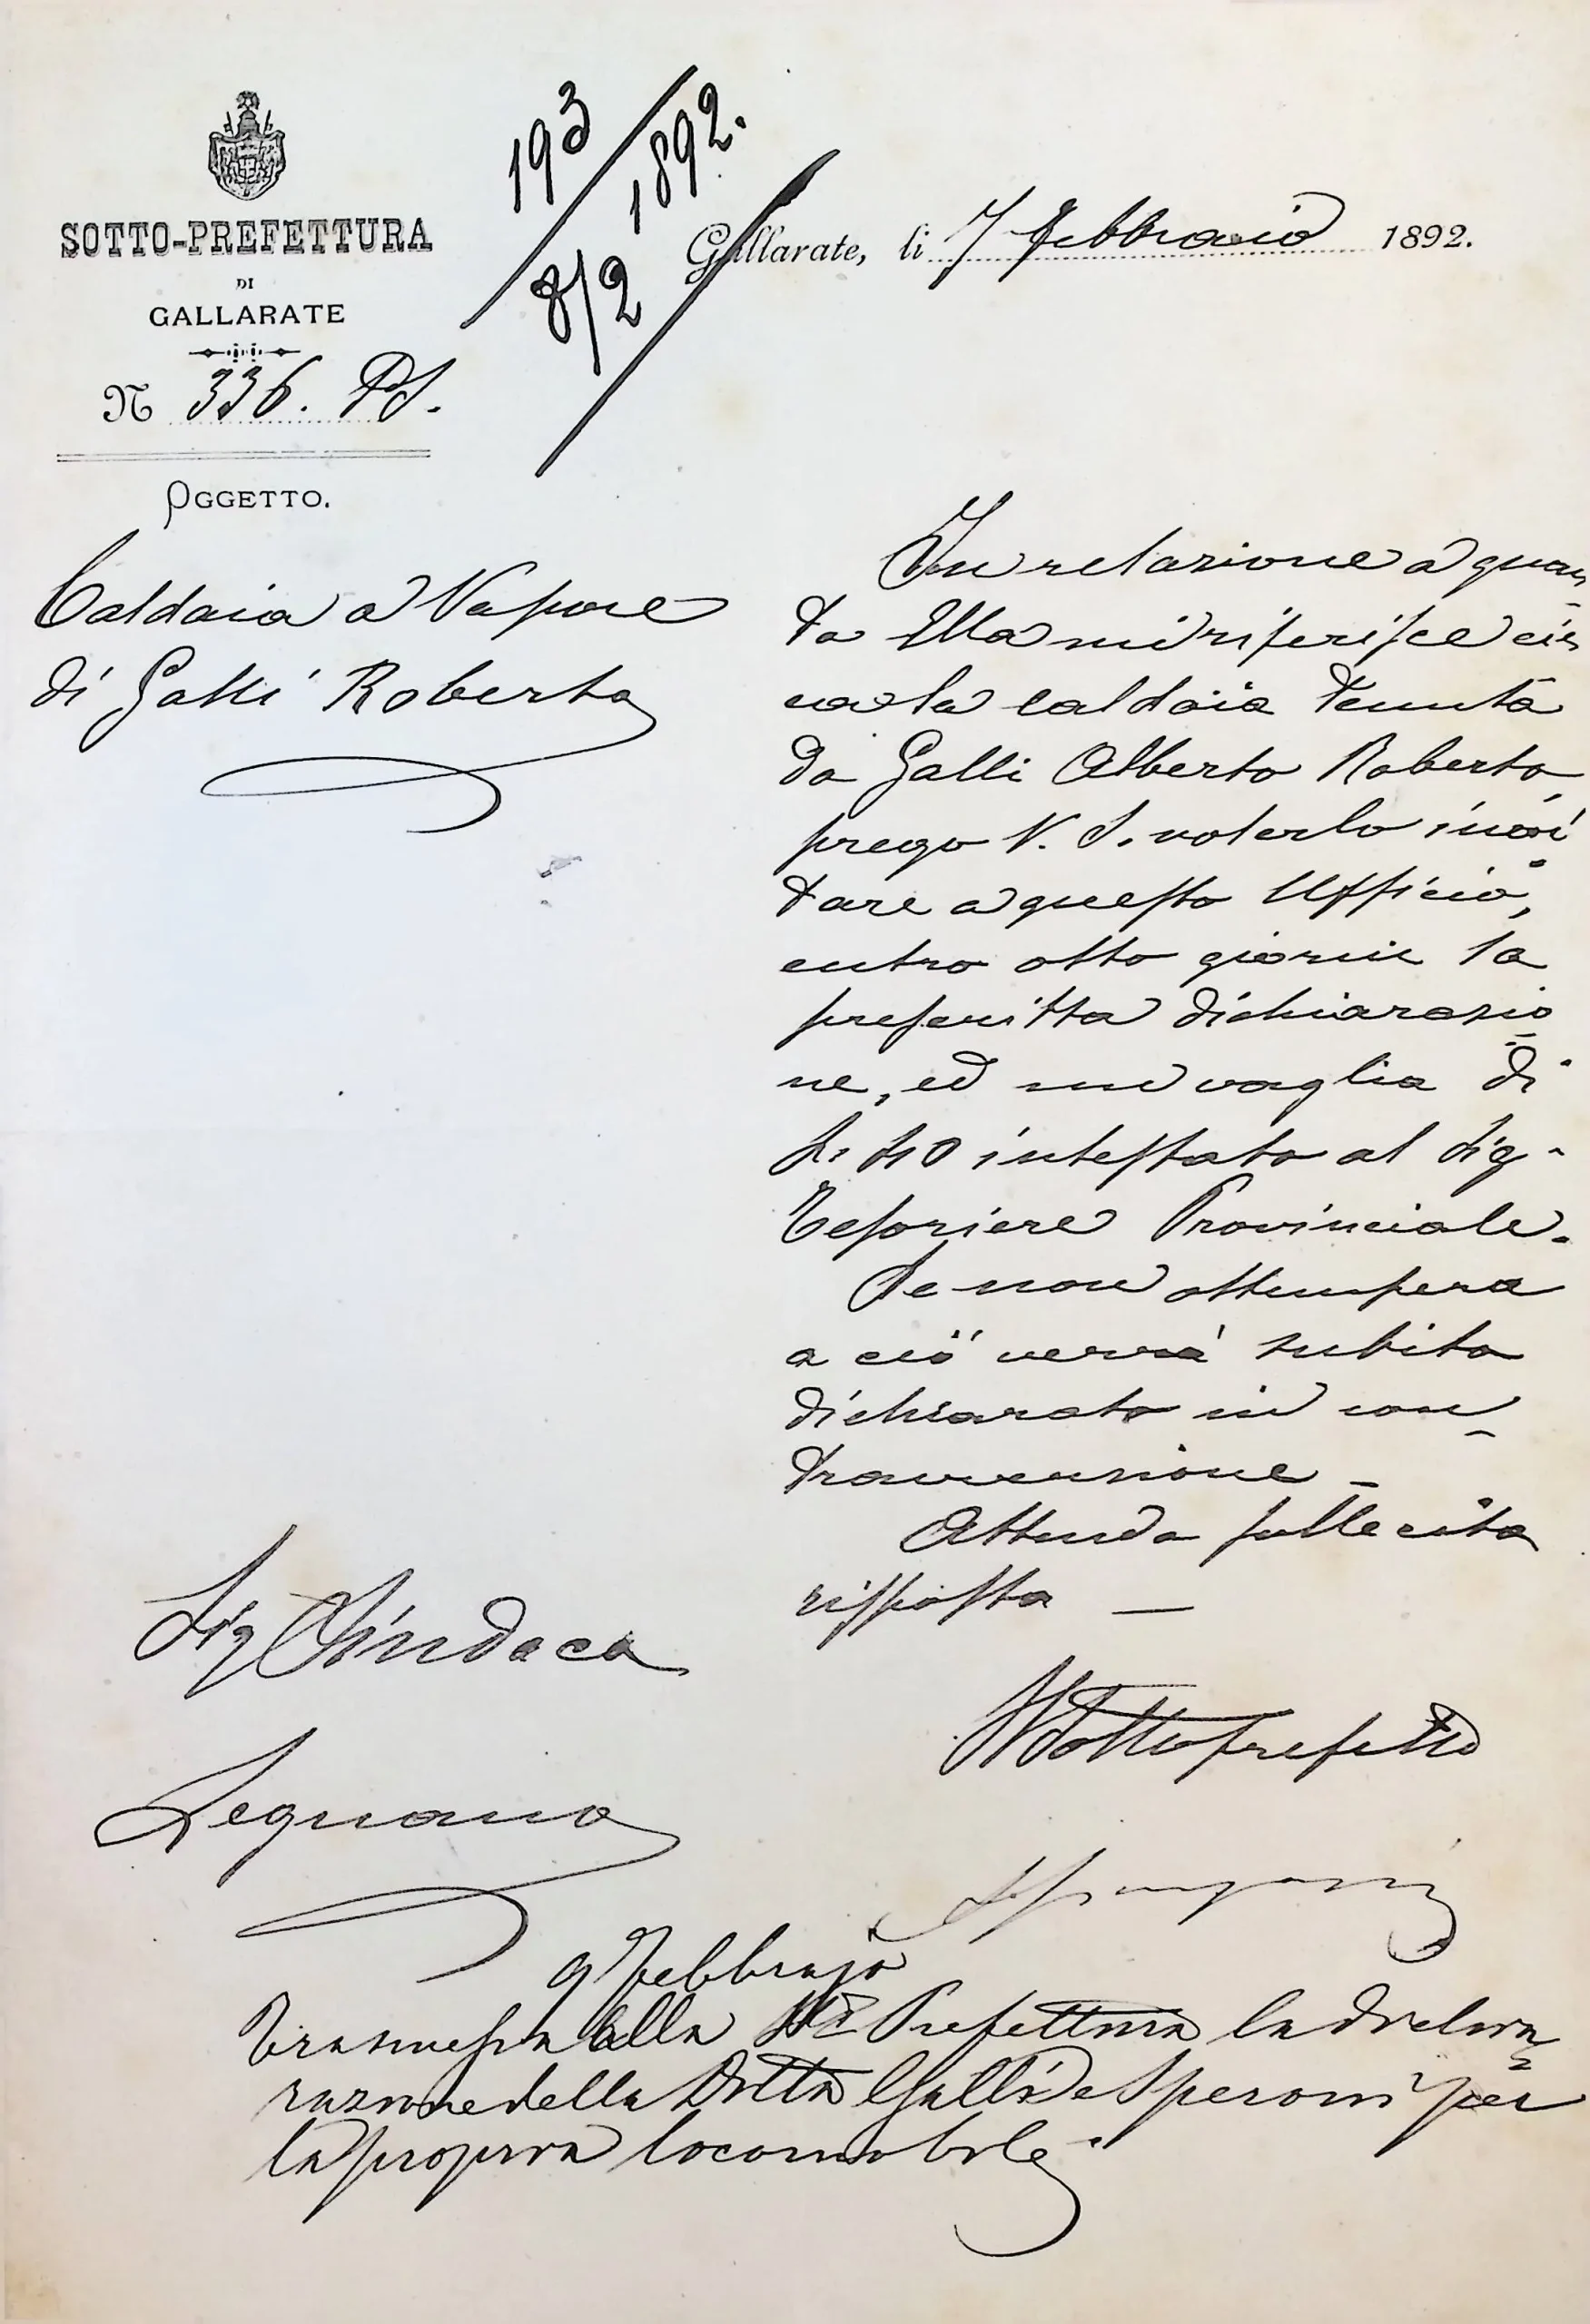 193
1892.
8/2
SOTTO-PREFETTURA
DI
GALLARATE
N 336. PS.
Gallarate, li 7 Febbraio 1892.
OGGETTO.
Caldaia a Vapore
di Galli Roberto
In relazione a quan
to Ella mi riferisce cir
ca la caldaia tenuta
da Galli Alberto Roberto,
prego V. S. volerlo invi
tare a questo Ufficio,
entro otto giorni la
prescritta dichiarazio
ne, ed un vaglia di
L. intestato al Sig.
Tesoriere Provinciale.
Se non ottempera
a ciò verrà subito
dichiarato in con
travvenzione –
Attendo sollecita
risposta —
Sig Sindaco
Legnano
Il Sottoprefetto
9 Febbrajo
Trasmessa alla Prefettura la dichia
razione della Ditta Galli e Speroni per
la propria locomobile.